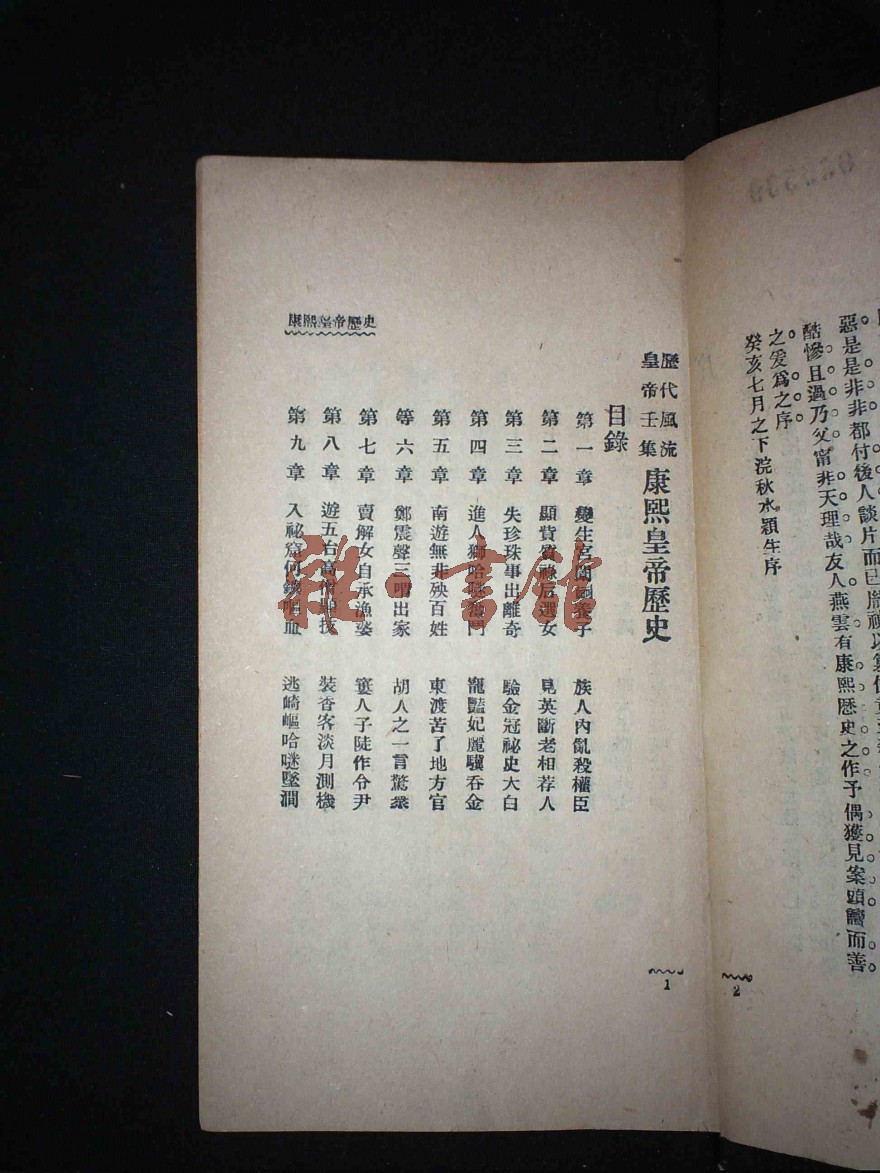 惡是是非非都付後人談片而已
酷慘且過乃父甯非天理哉友人燕雲有康熙歷史之作予偶獲見案頭讀而善
之爰爲之序
癸亥七月之下浣秋水穎生序
2
歷代風流
皇帝壬集
康熙皇帝歷史
目錄
第一章 變生宮 族人內亂殺權臣
第二章 顯貲 選女 見英斷老相荐人
第三章 失珍珠事出離奇 驗金冠祕史大白
第四章 進人獅哈 門 寵豔妃麗驥吞金
第五章 南遊無非殃百姓 東渡苦了地方官
等六章 鄭震聲三 出家 胡人之一言驚衆
第七章 賣解女自承漁婆 窶人子陡作令尹
第八章 遊五台高僧 技 裝香客淡月測機
第九章 入祕窟何 血 逃崎嶇哈咪墜澗
康熙皇帝歷史
1
雜·書館